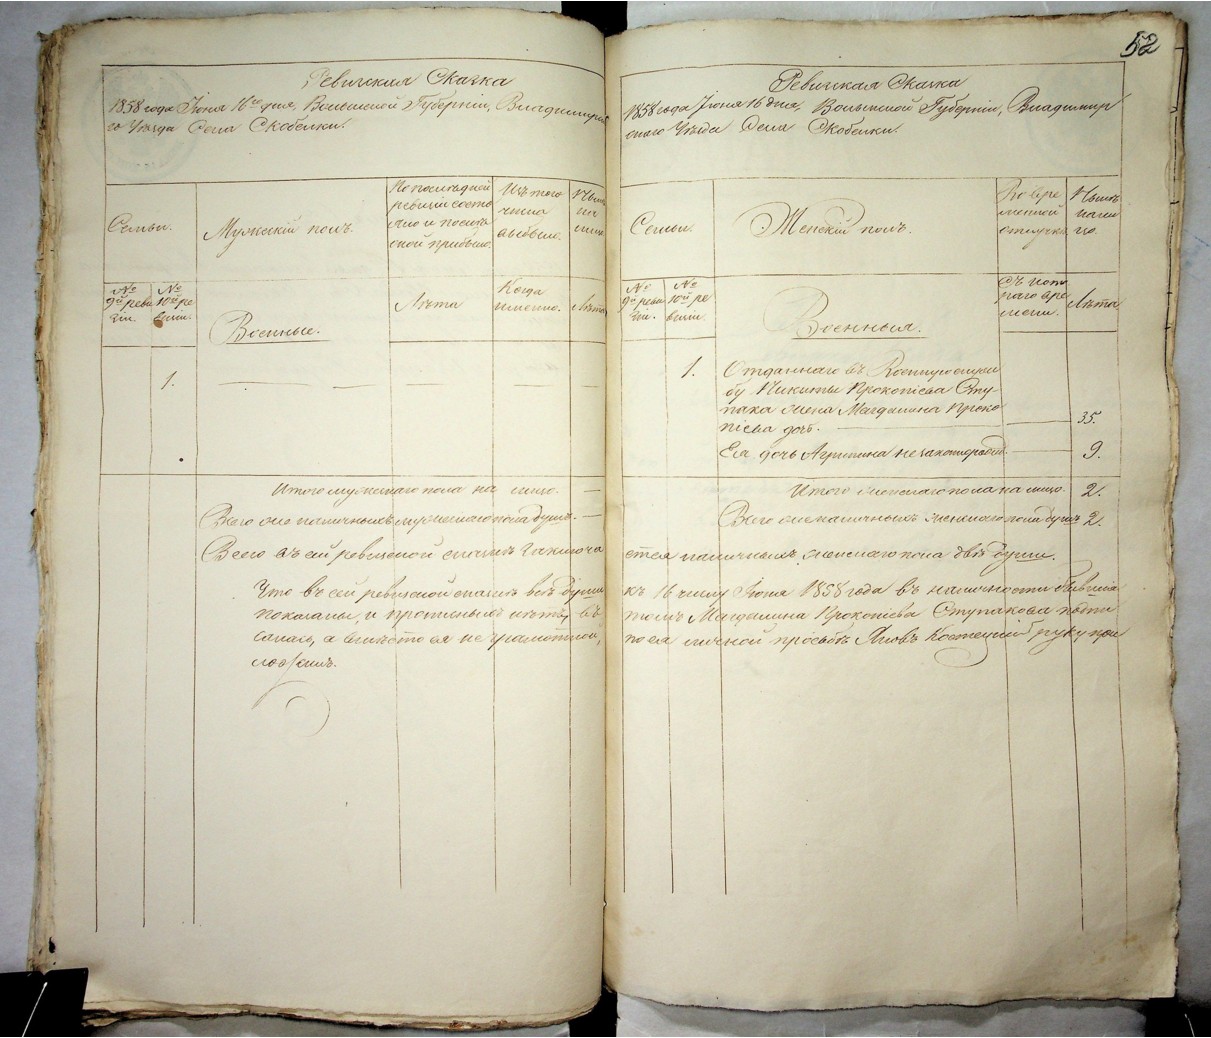 Ревизская Сказка
1858 года Іюня 16го дня, Волынской Губерніи, Владимирска
го Уезда Села Скобелки.
Семьи.
Мужескій полъ.
По последней
ревизіи состо
яло и после
оной прибыло.
Изъ того
числа
выбыло.
№
9й реви
зіи.
№
10й ре
визіи.
Военные.
Лѣта
Когда
именно.
Лѣта
1.
Итого мужескаго пола на лицо.
Всего оне наличныхъ мужескаго пола душъ.
Всего въ сей ревизской сказкѣ заключа
Что въ сей ревизской сказкѣ всѣ души
показаны, и прописныхъ нѣтъ, въ
а вместо ея не грамотной,
ложилъ.
52
Ревизская Сказка
1858 года Іюня 16 дня, Волынской Губерніи, Владимир
скаго Уѣзда Села Скобелки.
Семьи.
Женскій полъ.
Во вре
менной
отлучке
Нынѣ
нали
цо.
№
9й реви
зіи.
№
10й ре
визіи.
Военныя.
Съ кото
раго вре
мени.
Лѣта
1.
Отданнаго въ Военную служ
бу Никиты Прокопіева Сту-
пака жена Магдалина Проко
піева дочь. 35.
Ея дочь Агрипина незаконорожд. 9.
Итого женскаго пола на лицо. 2.
Всего оне наличныхъ женскаго пола душъ 2.
ется наличныхъ женскаго пола две души.
къ 16 числу Іюня 1858 года въ наличности бывшія
томъ Магдалина Прокопіева Ступакова подпи
по ея личной просьбѣ Яковъ Костецкій руку при